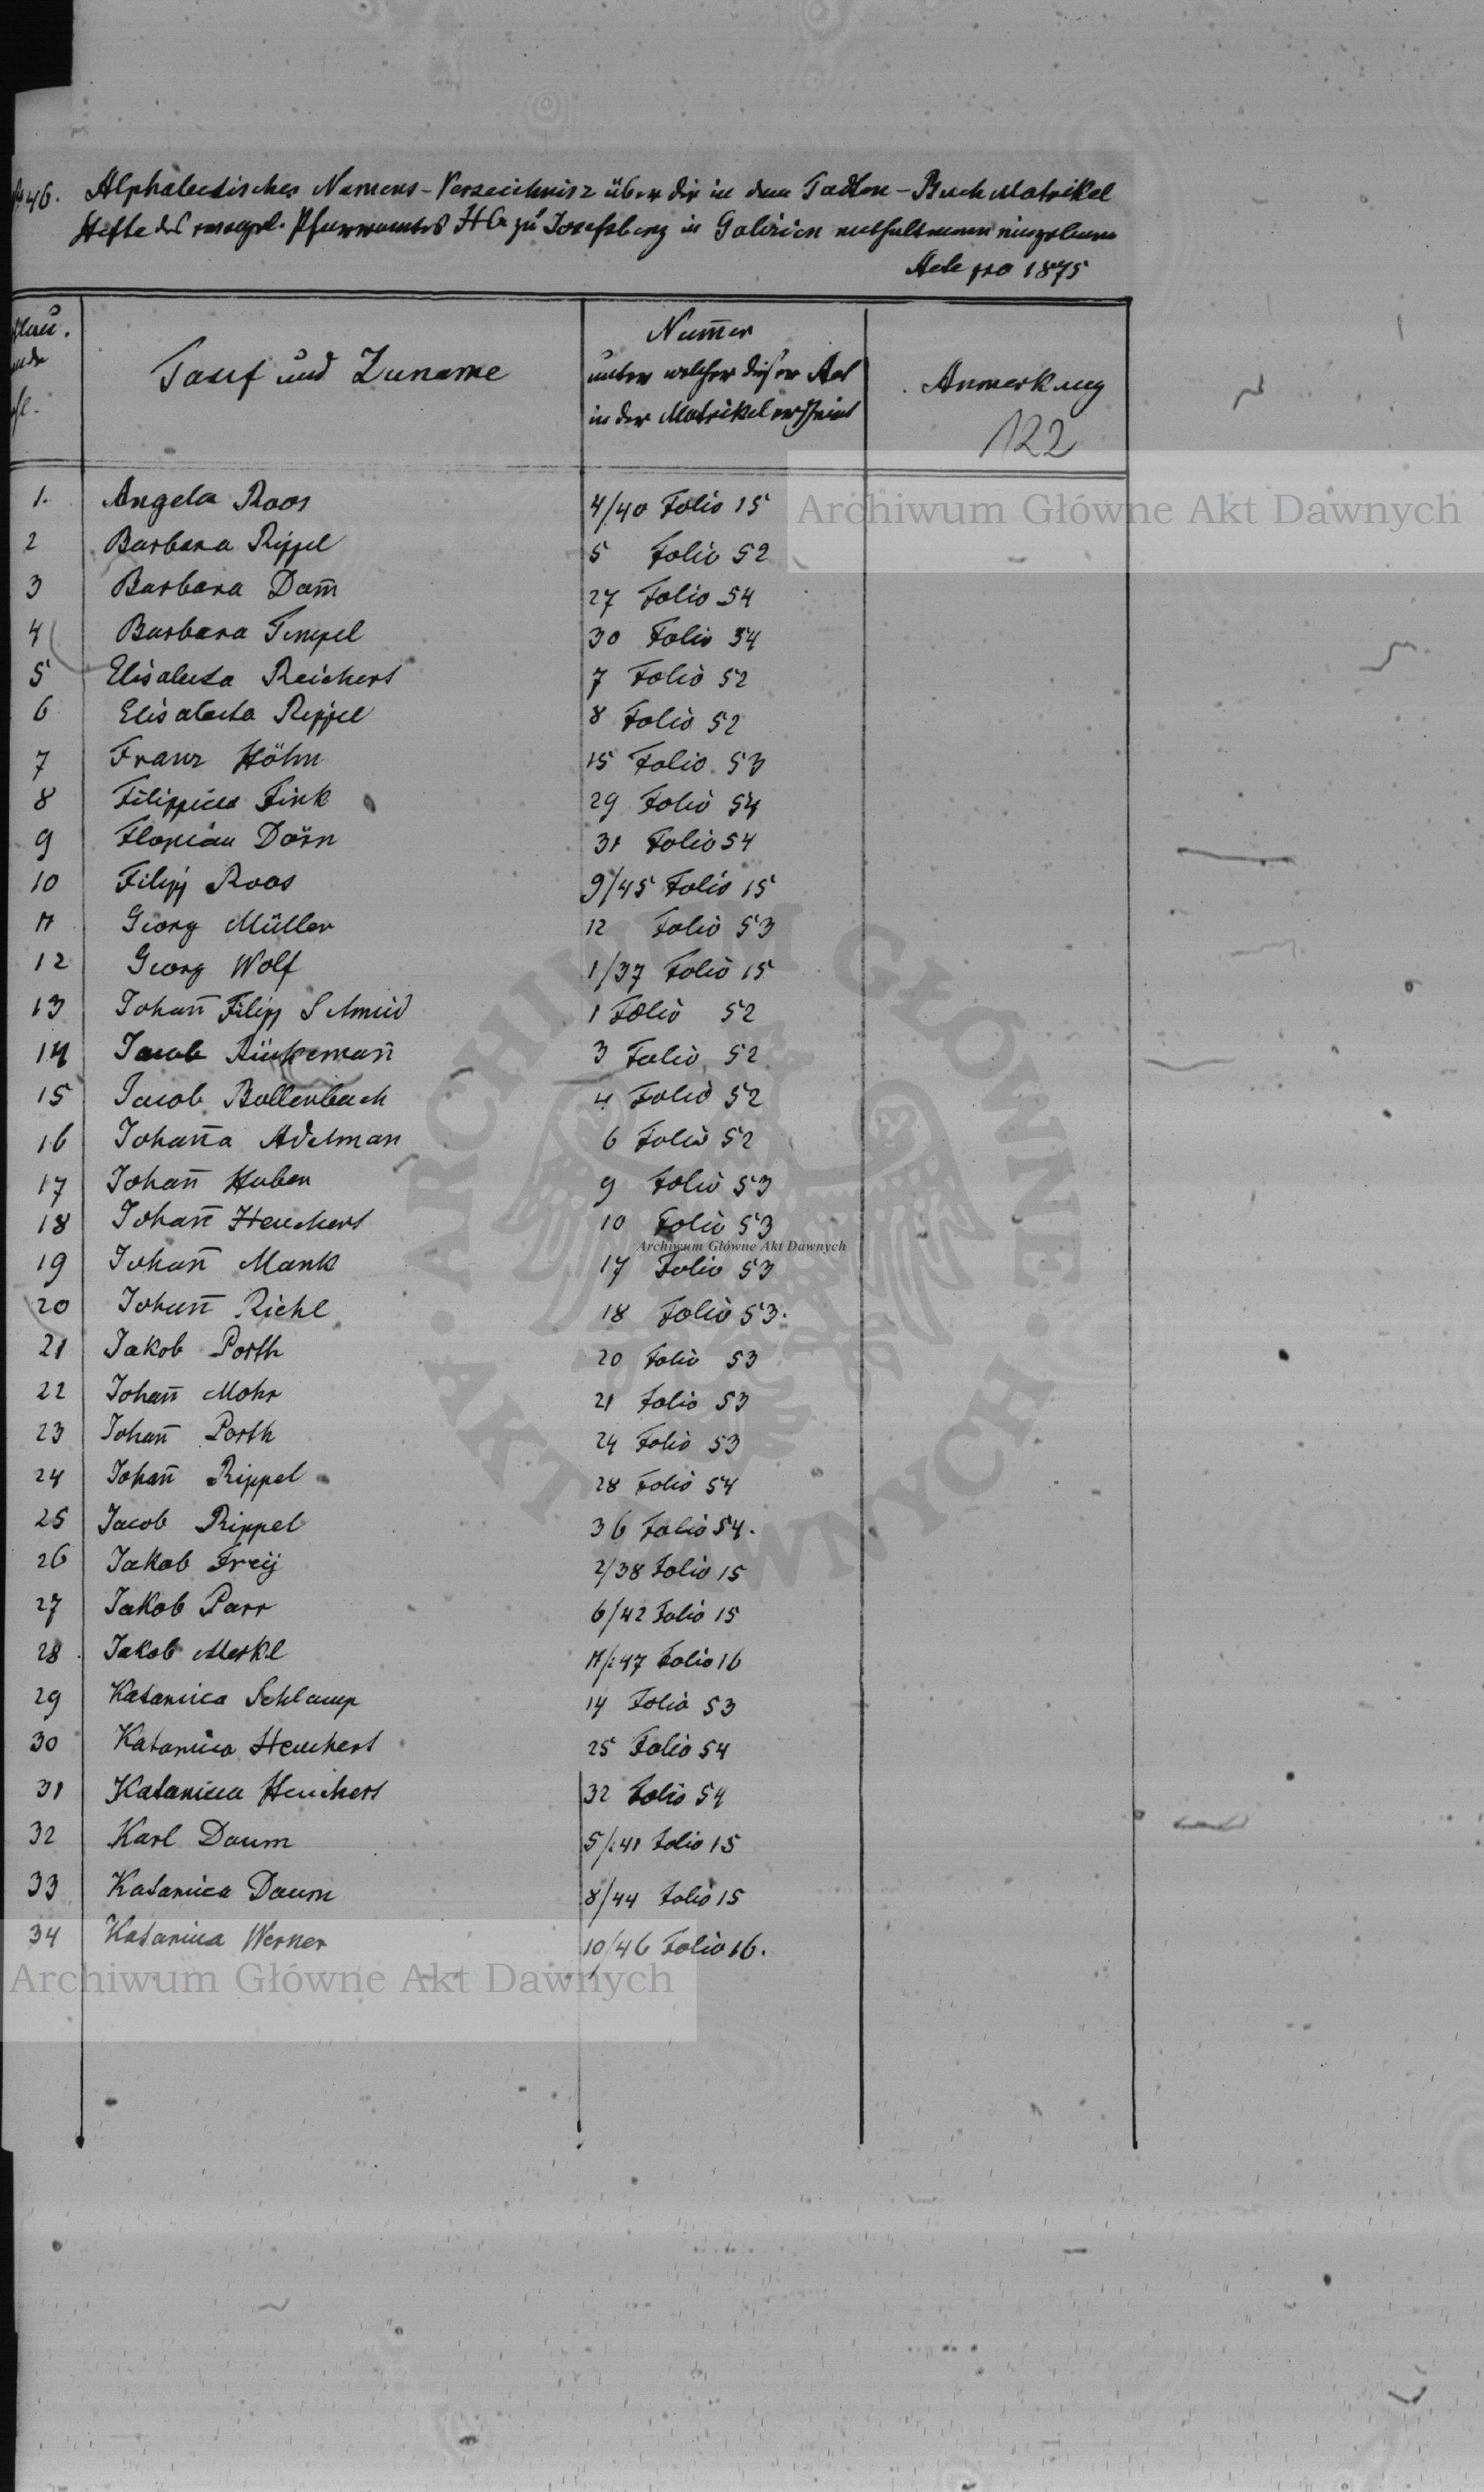 46. Alphabetisches Namens-Verzeichnisz über die in dem Todten-Buch Matrikel
Hefte des evangel. Pfarramtes HC zu Josefsberg in Galizien enthaltenen
Acte pro 1875
Numer
Tauf und Zuname
unter welcher dieser Act
Anmerkung
in der Matrikel erscheint
122
1. Angela Roos 4/40 Folio 15
2 Barbara Rippel 5 Folio 52
3 Barbara Dam̄ 27 Folio 54
4 Barbara Tempel 30 Folio 54
5 Elisabeta Reichert 7 Folio 52
6 Elisabeta Rippel 8 Folio 52
7 Franz Höhn 15 Folio 53
8 Filippina Fink 29 Folio 54
9 Florian Dörn 31 Folio 54
10 Filipp Roos 9/45 Folio 15
11 Georg Müller 12 Folio 53
12 Georg Wolf 1/37 Folio 15
13 Johan̄ Filipp Schmid 1 Folio 52
14 Jacob 3 Folio 52
15 Jacob Bollenbach 4 Folio 52
16 Johan̄a Adelman 6 Folio 52
17 Johan̄ Huber 9 Folio 53
18 Johan̄ Heuchert 10 Folio 53
19 Johan̄ Mank 17 Folio 53
20 Johan̄ Richl 18 Folio 53.
21 Jakob Porth 20 Folio 53
22 Johan̄ Mohr 21 Folio 53
23 Johan̄ Porth 24 Folio 53
24 Johan̄ Rippel 28 Folio 54
25 Jacob Rippel 36 Folio 54.
26 Jakob Freÿ 2/38 Folio 15
27 Jakob Parr 6/42 Folio 15
28 Jakob Merkl 11/:47 Folio 16
29 Katarina Schlamp 14 Folio 53
30 Katarina Heuchert 25 Folio 54
31 Katarina Heuchert 32 Folio 54
32 Karl Daum 5/:41 Folio 15
33 Katarina Daum 8/44 Folio 15
34 Katarina Werner 10/46 Folio 16.
Archiwum Główne Akt Dawnych
Archiwum Główne Akt Dawnych
Archiwum Główne Akt Dawnych
ARCHIWUM GŁÓWNE AKT DAWNYCH